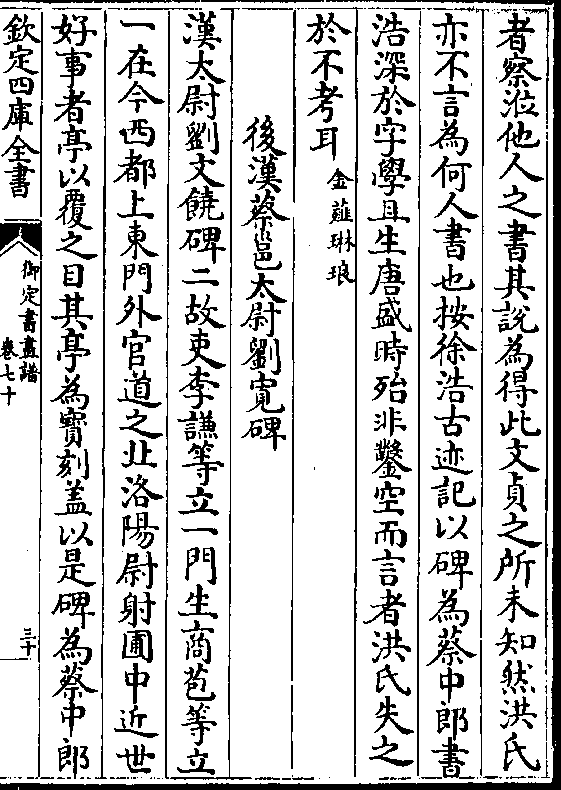 者察涖他人之書其說為得此文貞之所未知然洪氏
亦不言為何人書也按徐浩古迹記以碑為蔡中郎書
浩深於字學且生唐盛時殆非鑿空而言者洪氏失之
於不考耳金薤琳琅
後漢蔡邕太尉劉寬碑
漢太尉劉文饒碑二故吏李謙等立一門生商苞等立
一在今西都上東門外官道之北洛陽尉射圃中近世
好事者亭以覆之目其亭為寶刻盖以是碑為蔡中郎
欽定四庫全書
御定書畫譜
卷七十
三十